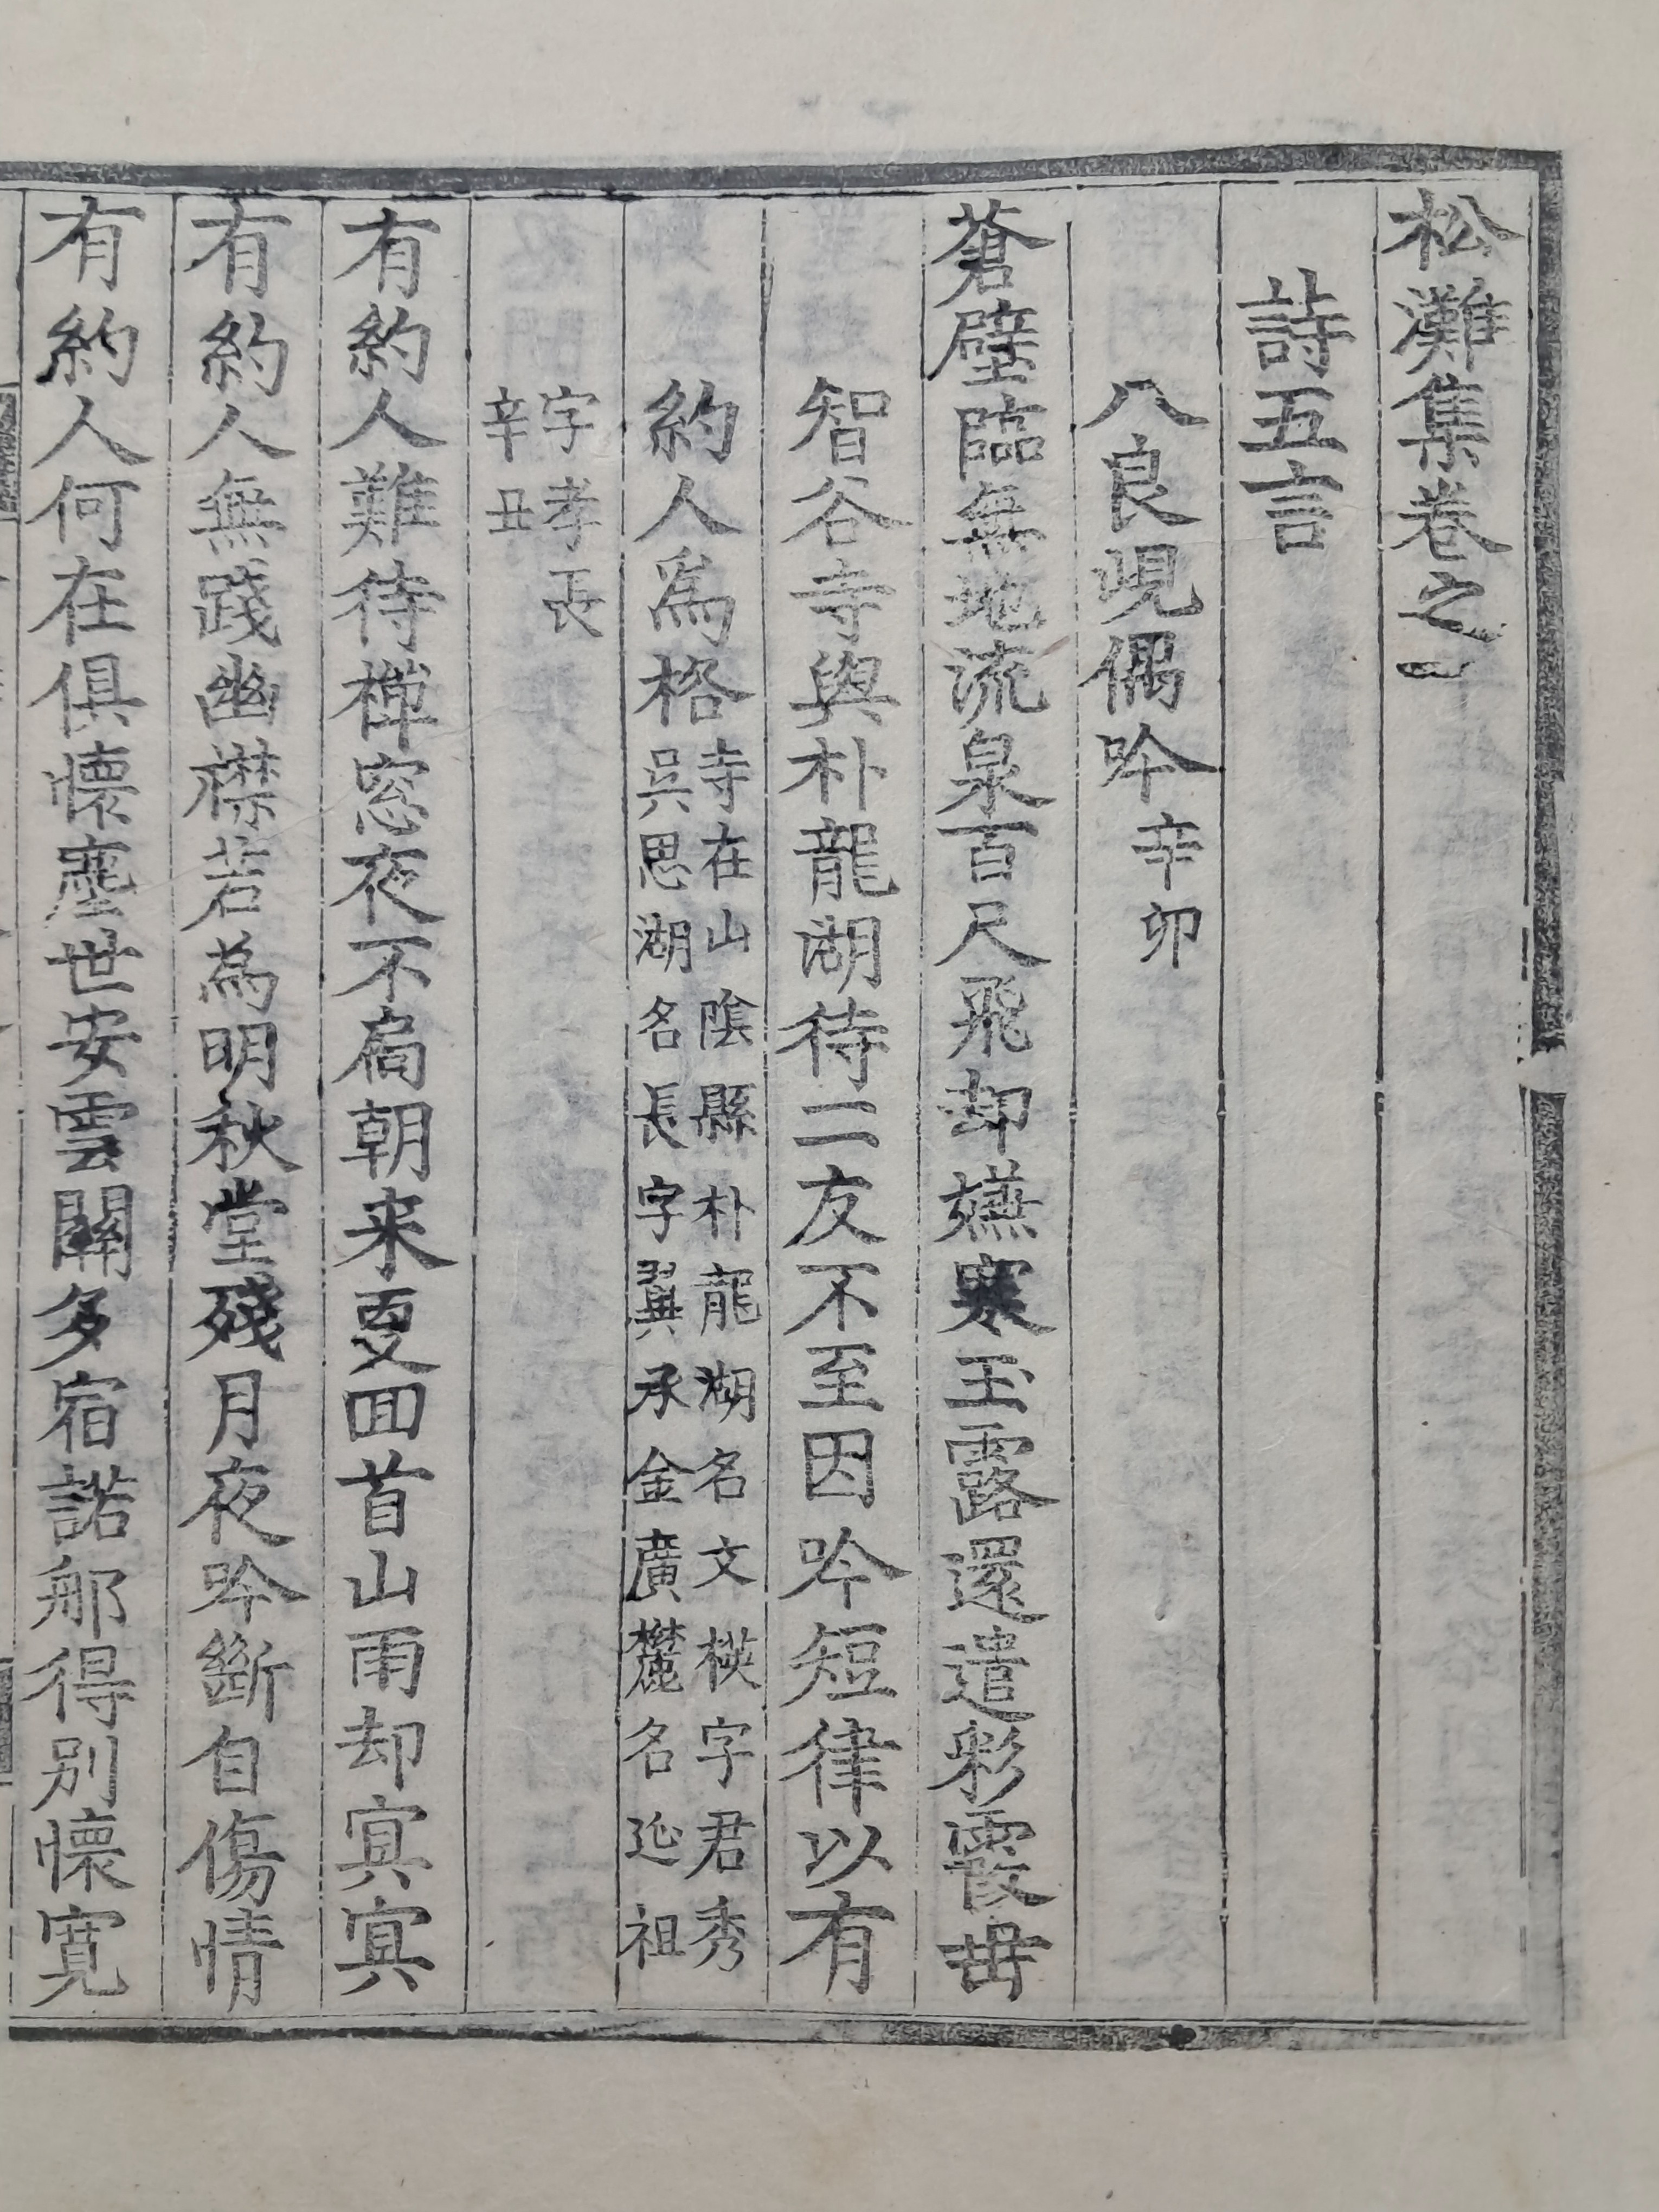 松灘集卷之一
詩五言
八良峴偶吟 辛卯
蒼壁臨無地流泉百尺飛却嫌寒玉露還遣彩霞
智谷寺與朴龍湖待二友不至因吟短律以有
約人爲格 寺在山陰縣朴龍湖名文楧字君秀
吳思湖名長字翼承金廣麓名延祖
字孝長
辛丑
有約人難待禪窓夜不扃朝来更回首山雨却冥冥
有約人無踐幽襟若為明秋堂殘月夜吟斷自傷情
有約人何在俱懷塵世安雲關多宿諾那得別懷寬